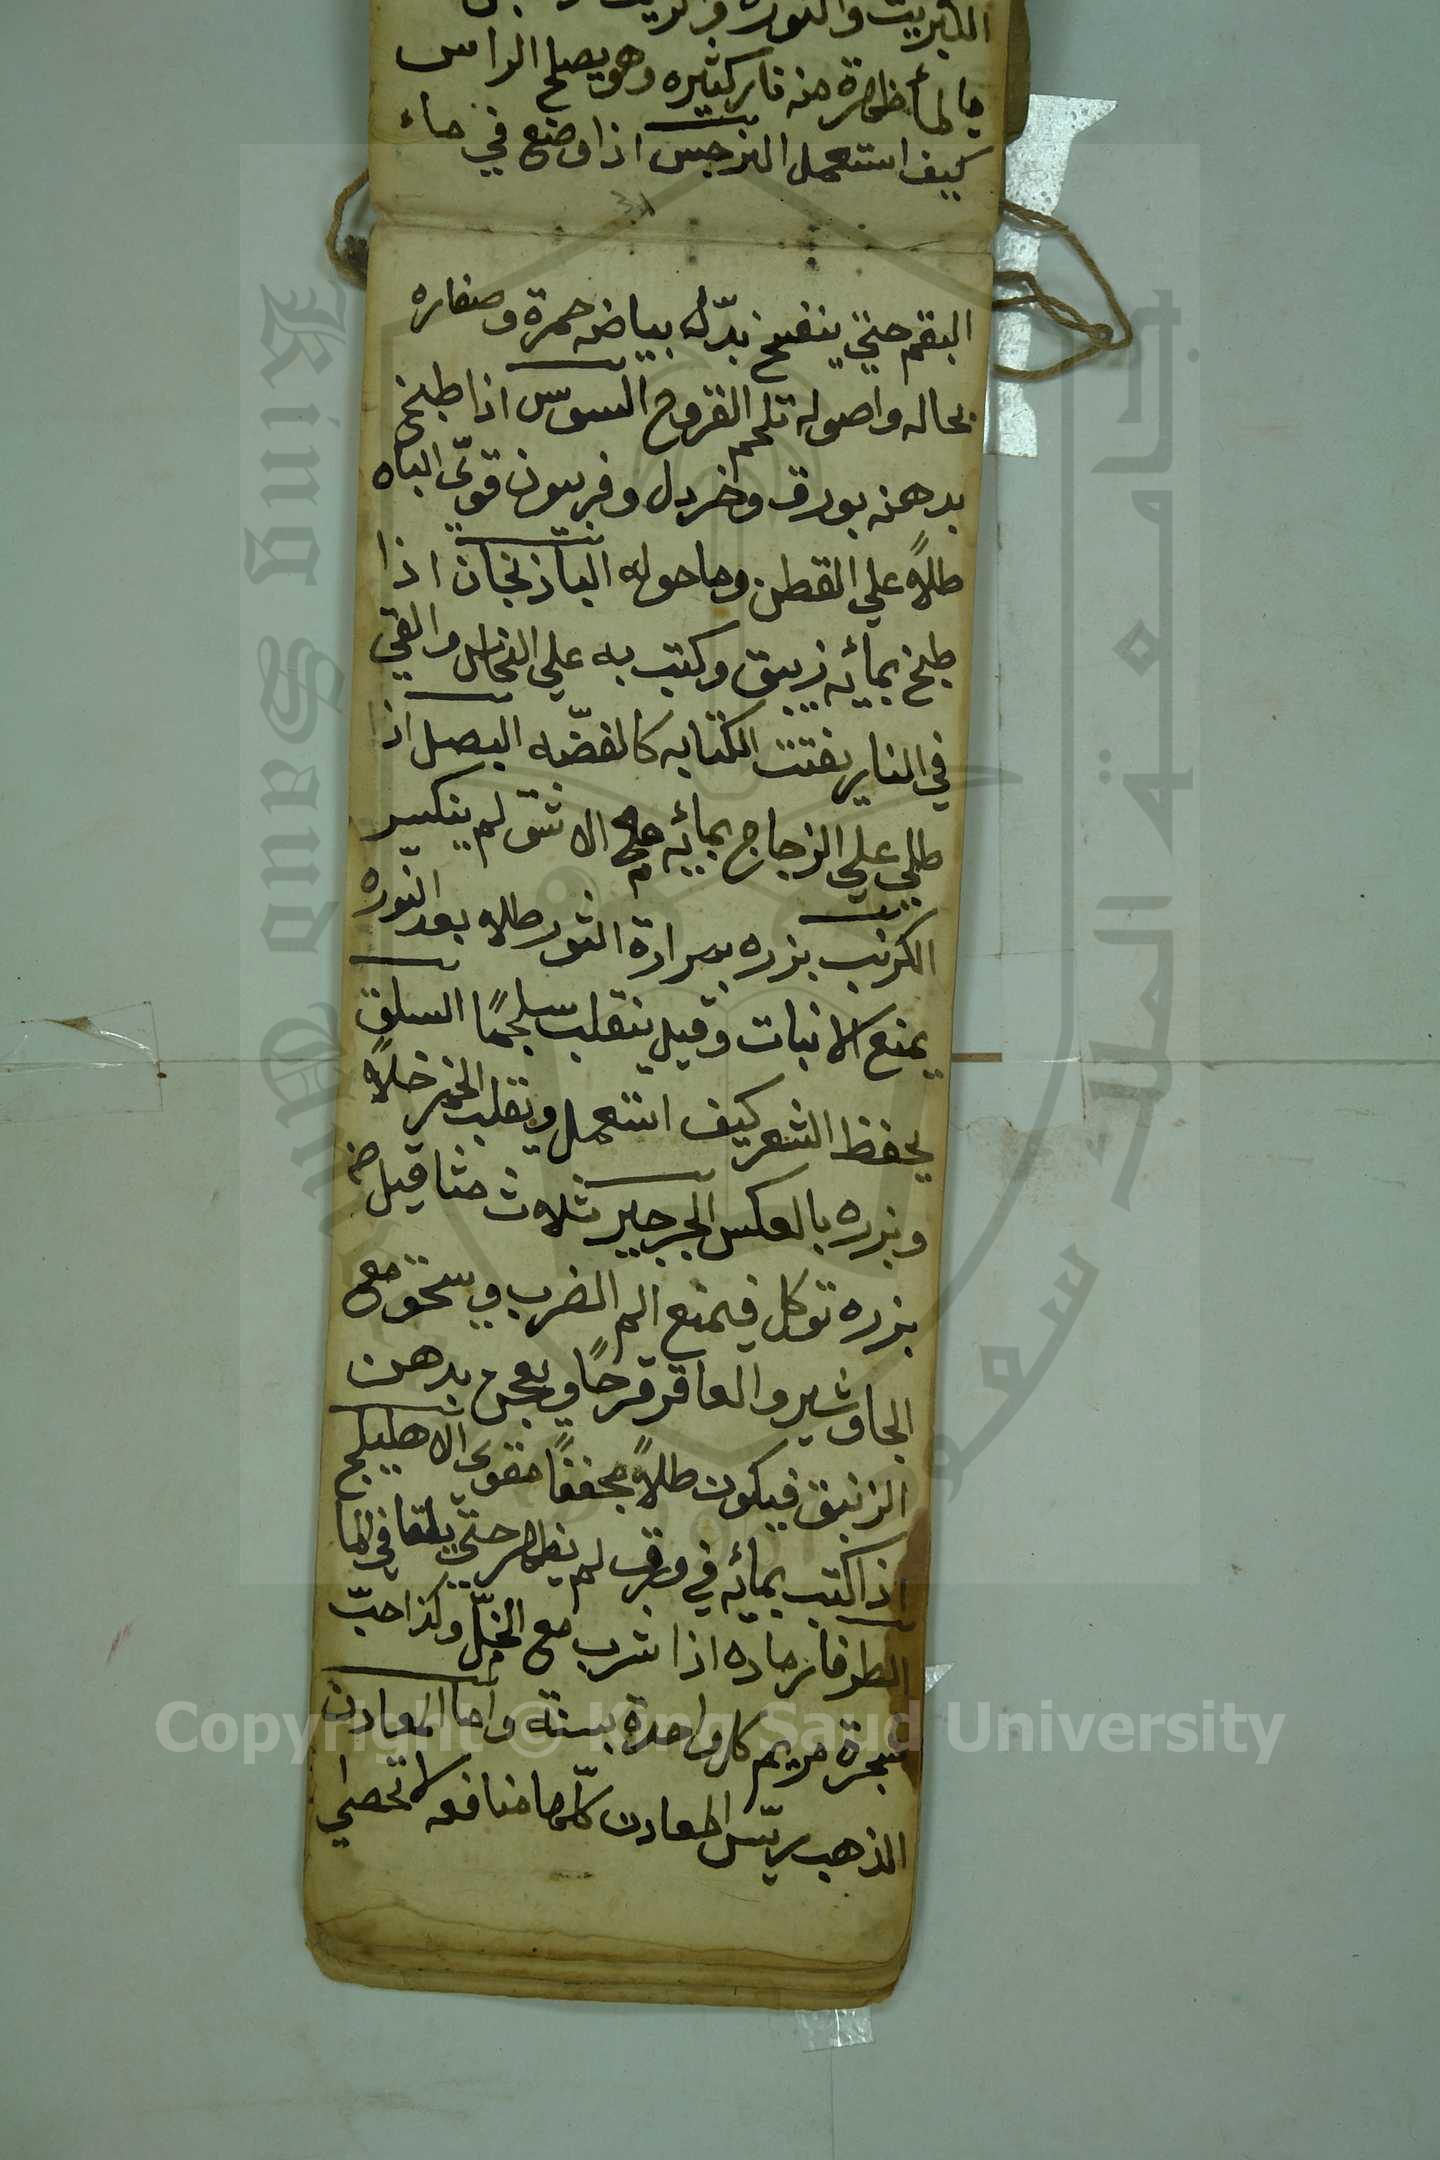 الكبريت والنوره والزيت
بالماء ظاهرة منه نار كثيره وهو يصلح الراس
كيف استعمل النرجس اذا وضع في ماء
البقم حتي ينفتح بدّل بياضه حمرة وصفاره
بحاله واصوله تلحم القروح السوس اذا طبخ
بدهنه بورق وخردل وفربيون قويّ الباه
طلاً علي القطن وما حوله الباذنجان اذا
طبخ بمائه زيبق وكتب به علي النحاس والقي
في النار بقت الكتابه كالفضّه البصل اذا
طلي علي الزجاج بمائه مع الاشق لم ينكسر
الكرنب بزره بمرارة الثور طلاه بعد النّوره
يمنع الانبات وقيل ينقلب سلجمًا السلق
يحفظ الشعر كيف استعمل ويقلب الخمر خلاً
وبزره بالعكس الجرجير ثلاث مثاقيل من
بزره توكل فيمنع الم الضرب ويسحق مع
الجاوشير والعاقرقرحًا ويعجن بدهن
الزنبق فيكون طلاً مجففًا مقويّ الاهليلج
اذا كتب بمائه في ورق لم يظهر حتّي يلقا في الما
الطرفا رماده اذا شرب مع الخلّ وكذا حبّ
شجرة مريم كل واحدة بسنة واما المعادن
الذهب ريّس المعادن كلّها منافعه لا تحصي
Copyright © King Saud University
King Saud University
جامعة الملك سعود
1957